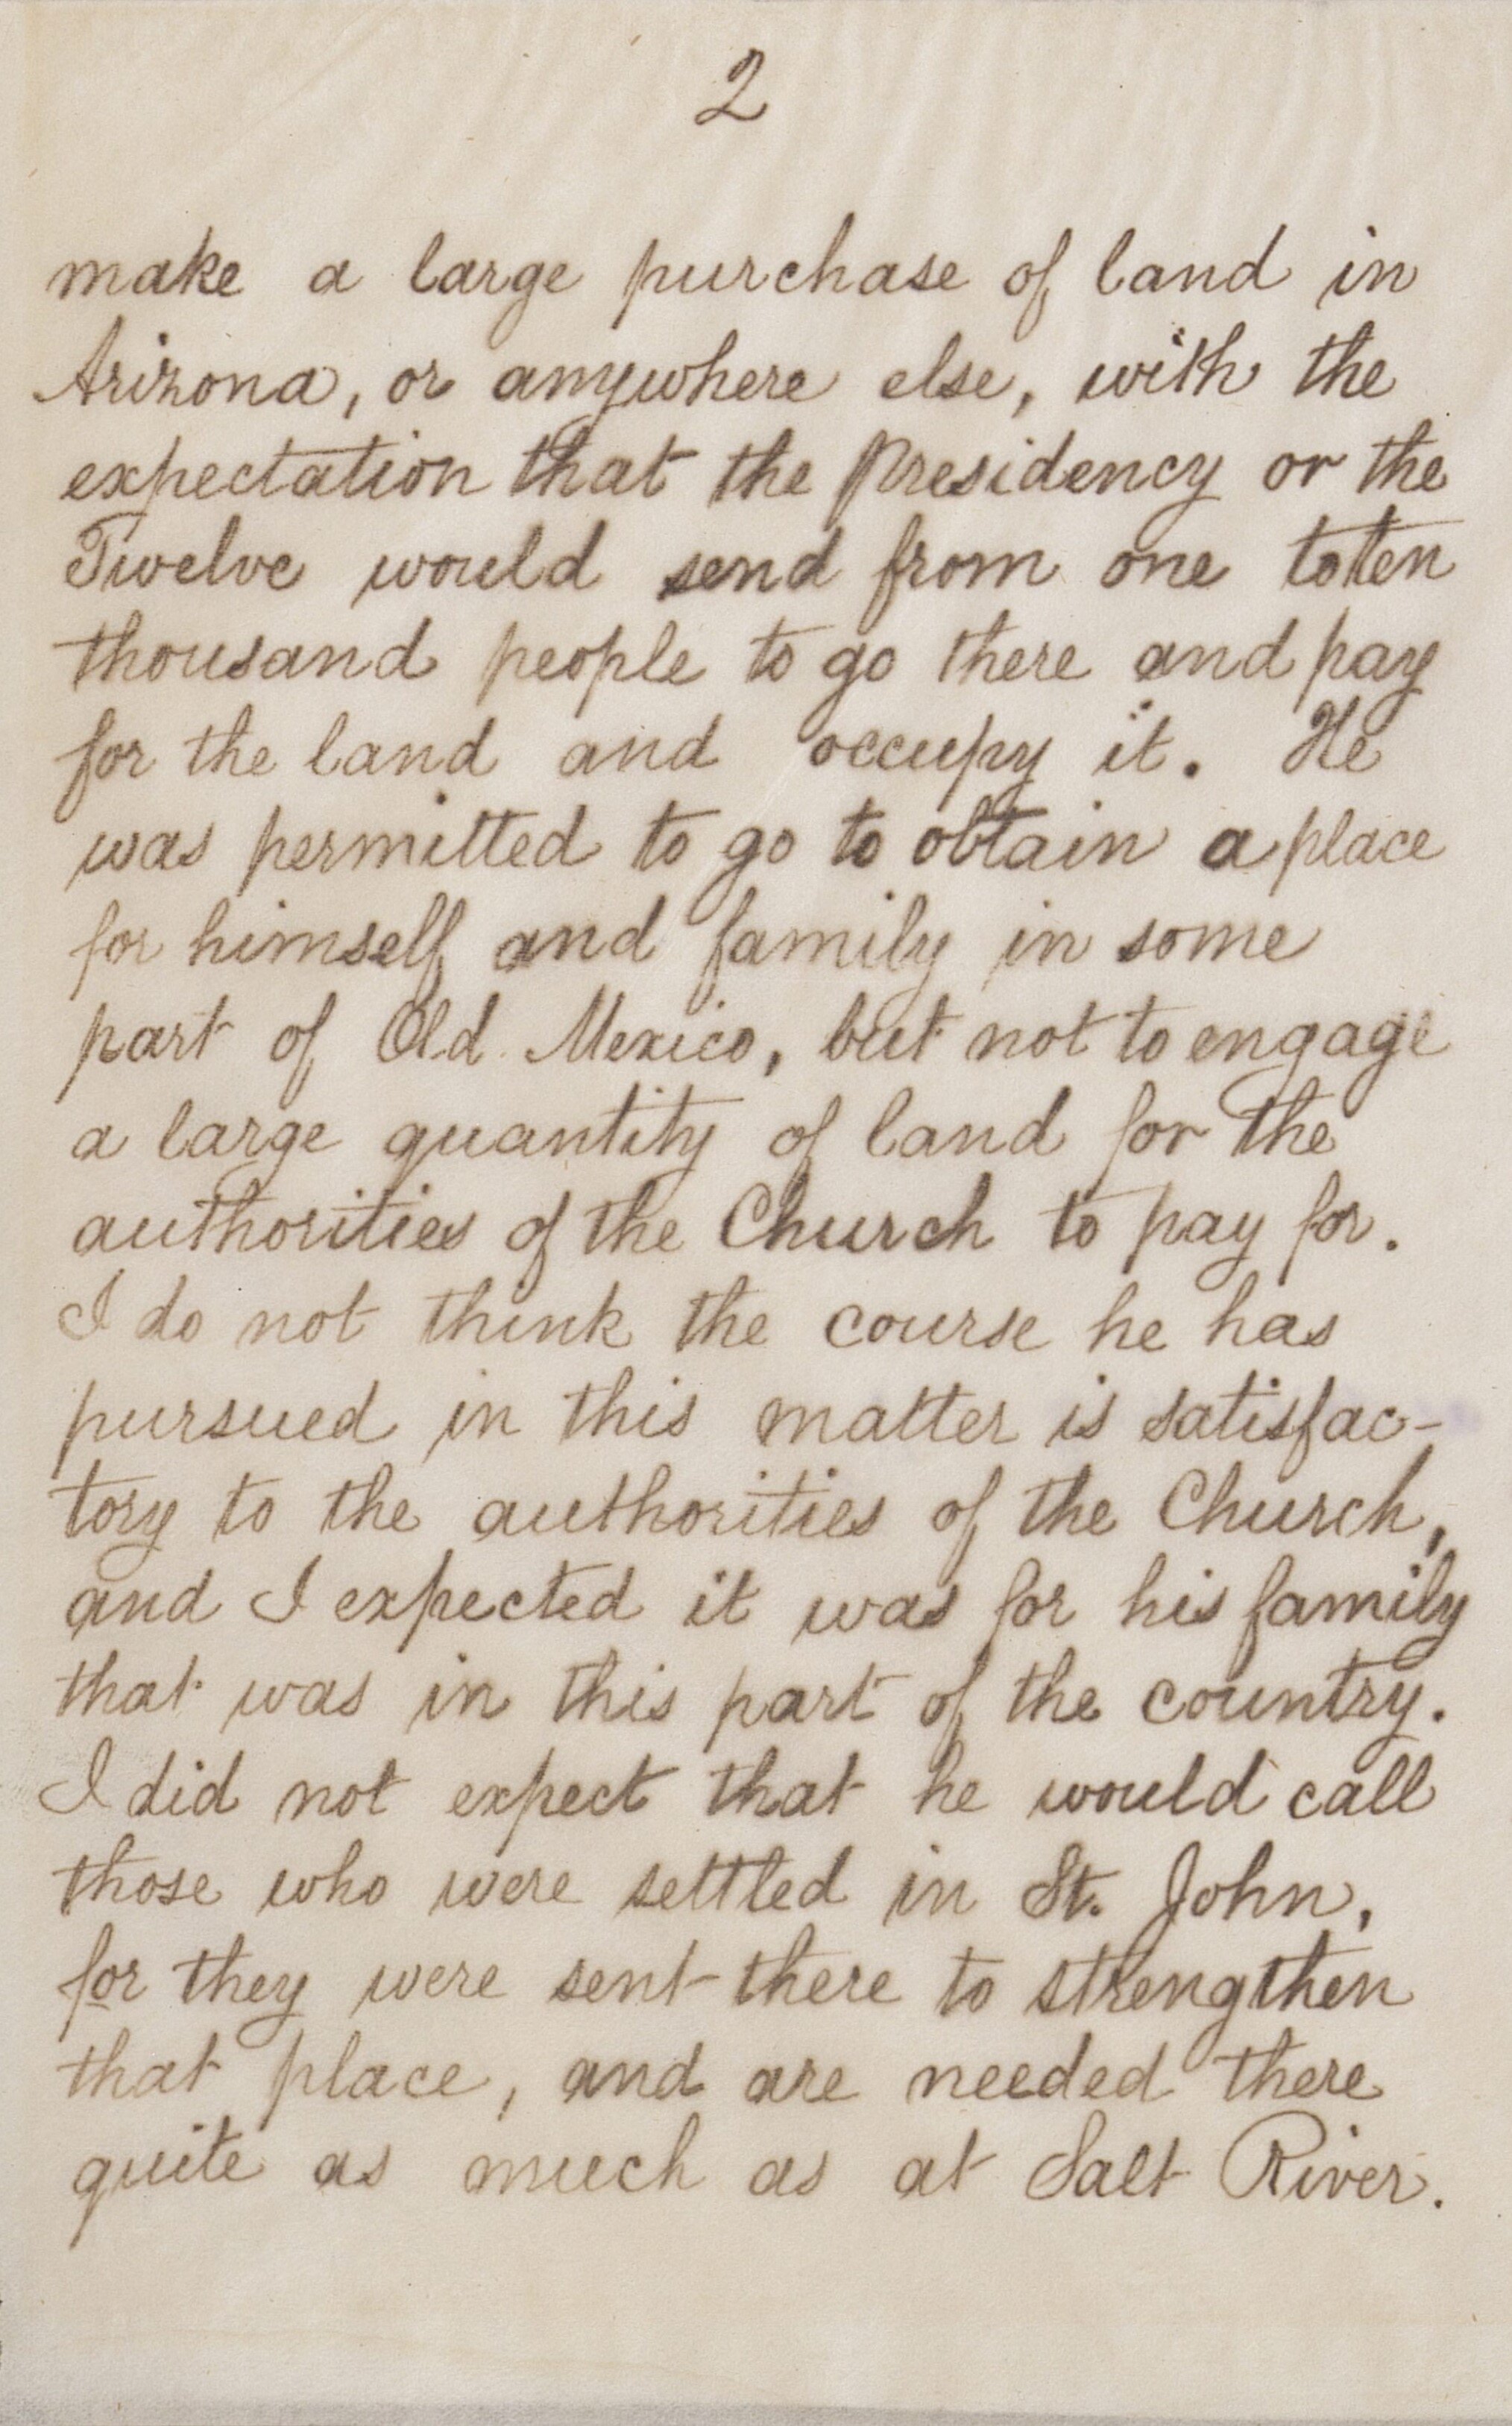 2
make a large purchase of land in
Arizona, or anywhere else, with the
expectation that the Presidency or the
Twelve would send from one to ten
thousand people to go there and pay
for the land and occupy it. He
was permitted to go to obtain a place
for himself and family in some
part of Old Mexico, but not to engage
a large quantity of land for the
authorities of the Church to pay for.
I do not think the course he has
pursued in this matter is satisfac-
tory to the authorities of the Church,
and I expected it was for his family
that was in this part of the country.
I did not expect that he would call
those who were settled in St. John,
for they were sent there to strengthen
that place, and are needed there
quite as much as at Salt River.